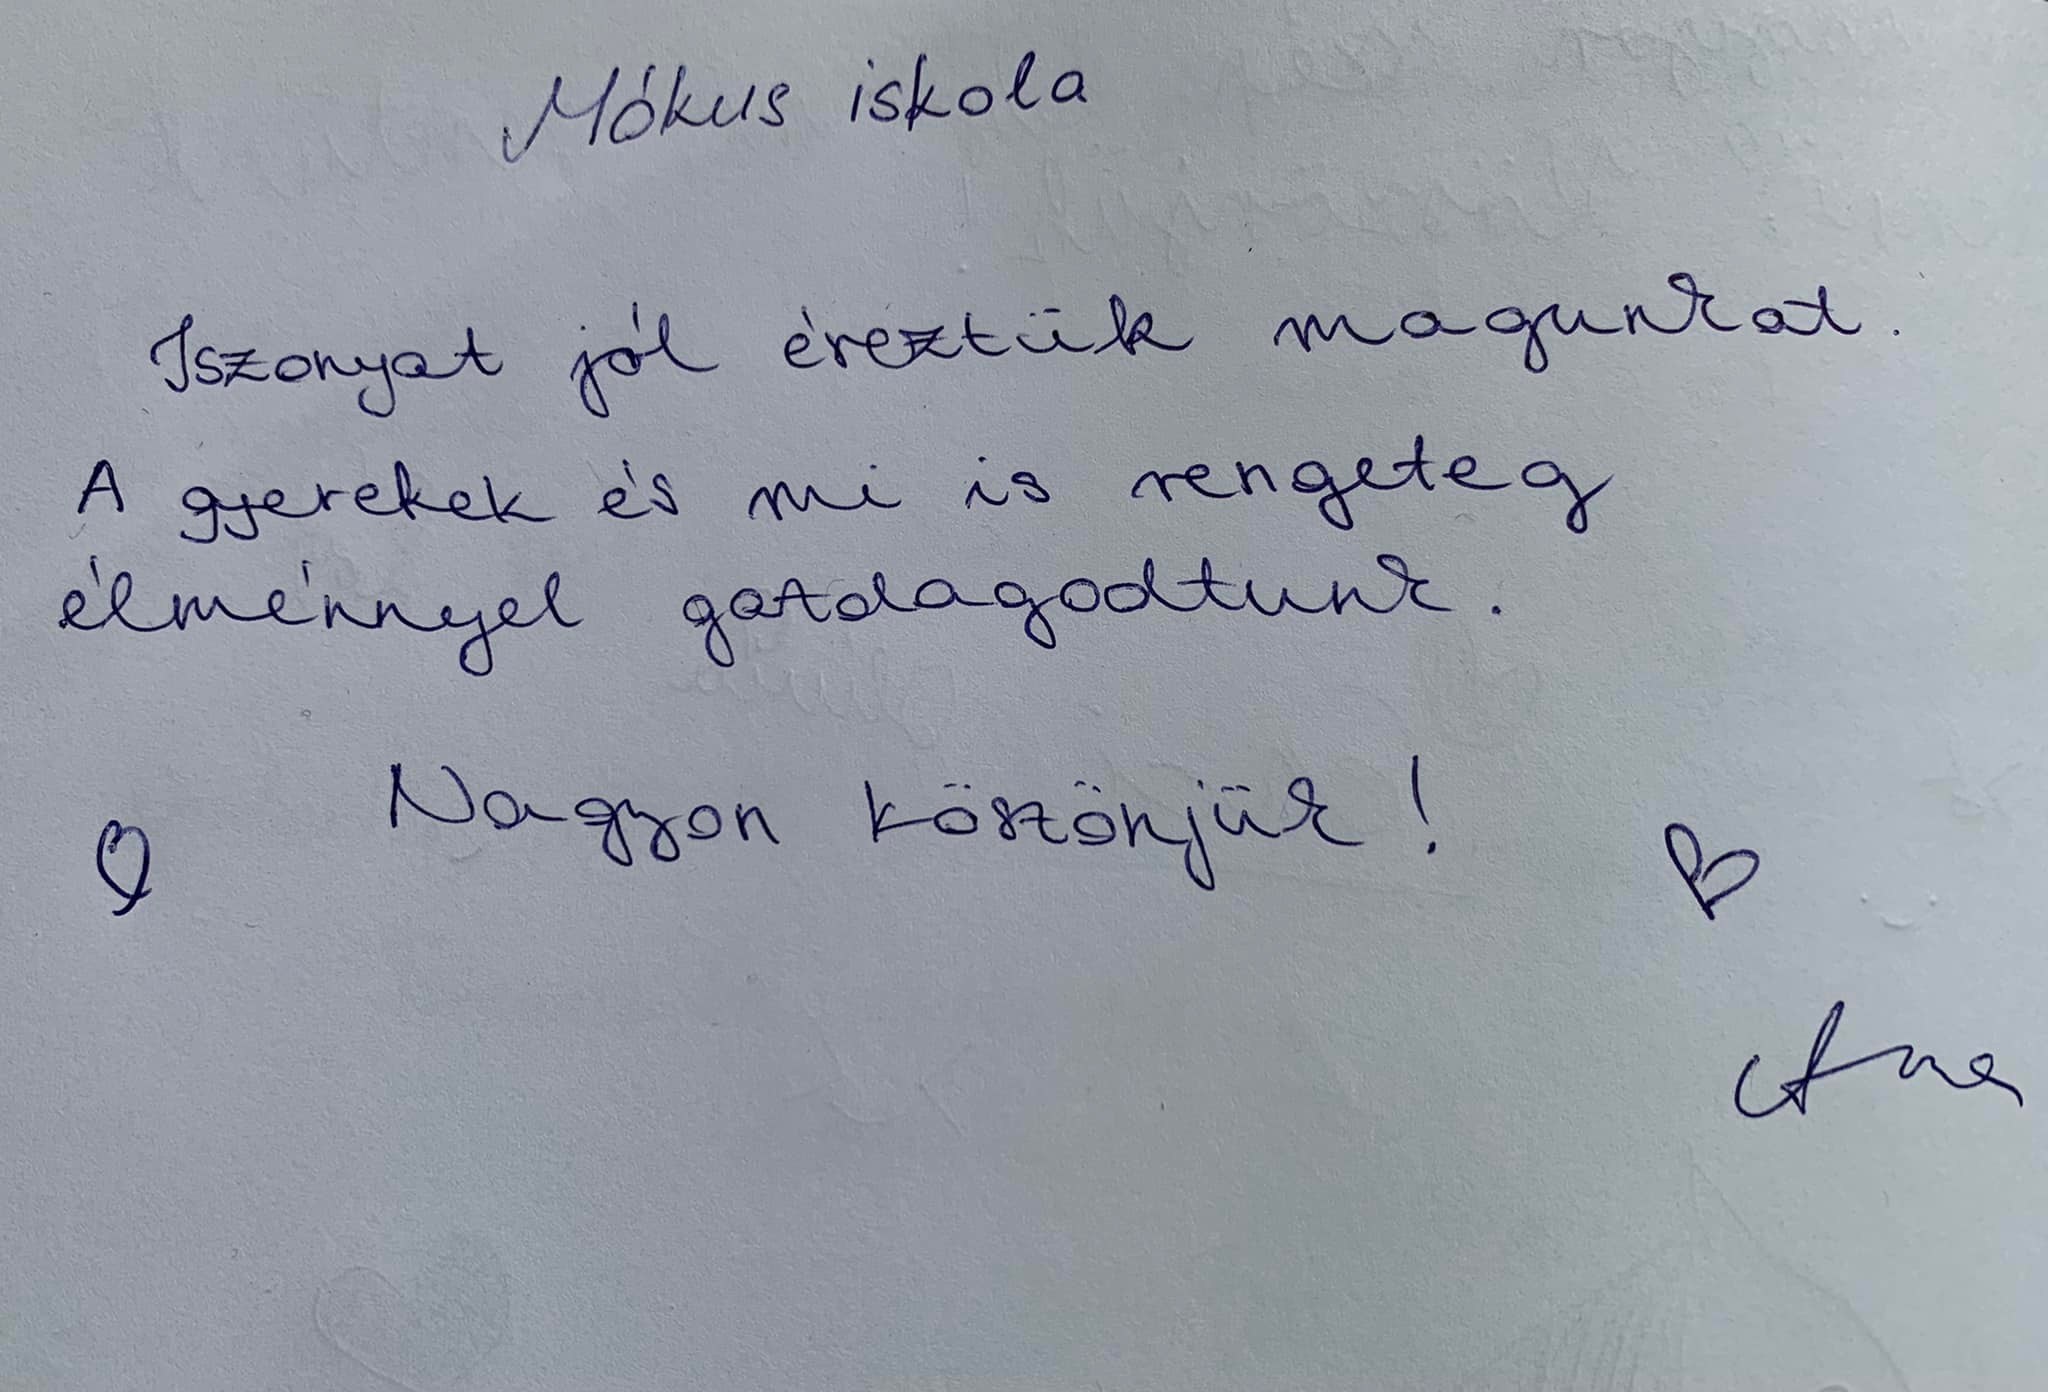 Mókus iskola
Iszonyat jól éreztük magunkat.
A gyerekek és mi is rengeteg
élménnyel gazdagodtunk.
Nagyon köszönjük!